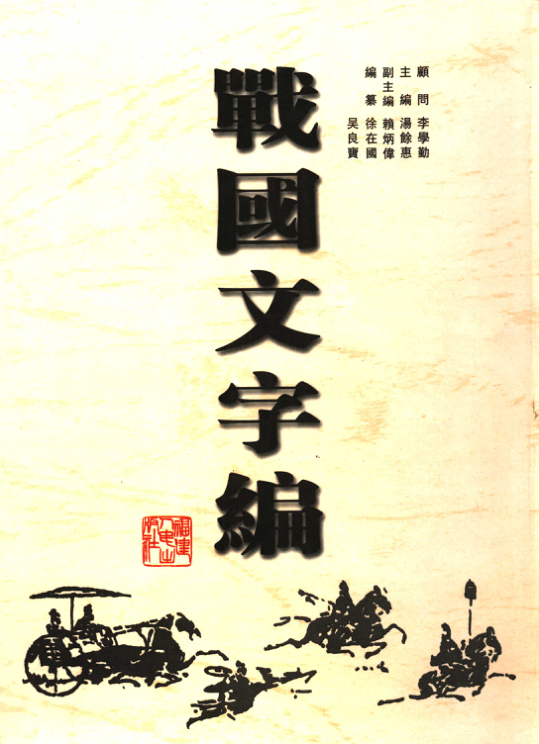 顧問 李學勤
主編 湯餘惠
副主編 賴炳偉
編纂 徐在國
吴良寶
戰國文字編
福建
人民出
版社